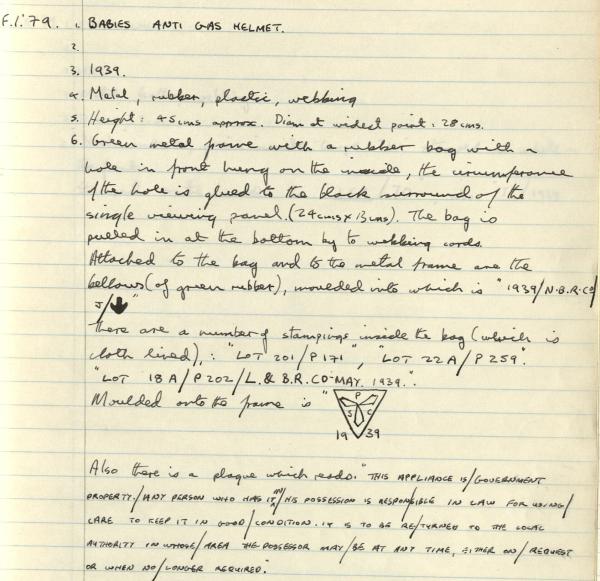 F.I.'79. 1. BABIES ANTI GAS HELMET.
2.
3. 1939.
4. Metal, rubber, plastic, webbing
5. Height: 45cms approx. Diam at widest point: 28cms.
6. Green metal frame with a rubber bag with a
hole in front hung on the inside, the circumference
of the hole is glued to the black surround of the
single viewing panel. (24cms x 13cms). The bag is
pulled in at the bottom by to webbing cords.
Attached to the bag and to the metal frame are the
bellows (of green rubber), moulded into which is "1939/N.B.R.CO/
J/↓"
there are a number of stampings inside the bag (which is
cloth lined),: "LOT 201/P171", "LOT 22A/P259".
"LOT 18A/P202/L.&B.R.CO-MAY. 1939.".
Moulded onto the frame is "
P
S C
19 39
Also there is a plaque which reads: "THIS APPLIANCE IS/GOVERNMENT
PROPERTY./ANY PERSON WHO HAS IT IN/HIS POSSESSION IS RESPONSIBLE IN LAW FOR USING/
CARE TO KEEP IT IN GOOD/CONDITION. IT IS TO BE RE/TURNED TO THE LOCAL
AUTHORITY IN WHOSE/AREA THE POSSESSOR MAY/BE AT ANY TIME, EITHER ON/REQUEST
OR WHEN NO/LONGER REQUIRED."